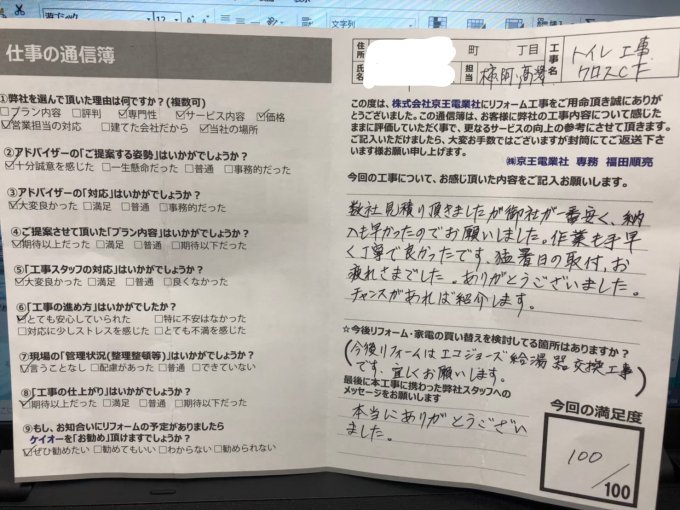 仕事の通信簿
①弊社を選んで頂いた理由は何ですか？(複数可)
□プラン内容 □評判 ☑専門性 ☑サービス内容 ☑価格
☑営業担当の対応 □建てた会社だから ☑当社の場所
②アドバイザーの「ご提案する姿勢」はいかがでしょうか？
☑十分誠意を感じた □一生懸命だった □普通 □事務的だった
③アドバイザーの「対応」はいかがでしょうか？
☑大変良かった □満足 □普通 □事務的だった
④ご提案させて頂いた「プラン内容」はいかがでしょうか？
☑期待以上だった □満足 □普通 □期待以下だった
⑤「工事スタッフの対応」はいかがでしょうか？
☑大変良かった □満足 □普通 □良くなかった
⑥「工事の進め方」はいかがでしたか？
☑とても安心していられた □特に不安はなかった
□対応に少しストレスを感じた □とても不満を感じた
⑦現場の「管理状況(整理整頓等)」はいかがでしょうか？
☑言うことなし □配慮があった □普通 □できていない
⑧「工事の仕上がり」はいかがでしょうか？
☑期待以上だった □満足 □普通 □期待以下だった
⑨もし、お知合いにリフォームの予定がありましたら
ケイオーを「お勧め」頂けますでしょうか？
☑ぜひ勧めたい □勧めてもいい □わからない □勧められない
住所 町 丁目
氏名 担当
工事名 トイレ工事
クロスCF
この度は、株式会社京王電業社にリフォーム工事をご用命頂き誠にありが
とうございました。この通信簿は、お客様に弊社の工事内容について感じた
ままに評価していただく事で、更なるサービスの向上の参考にさせて頂きます。
ご記入いただけましたら、大変お手数ではございますが封筒にてご返送下さ
います様お願い申し上げます。
㈱京王電業社 専務 福田順亮
今回の工事について、お感じ頂いた内容をご記入お願いします。
数社見積り頂きましたが御社が一番安く、納
入も早かったのでお願いしました。作業も手早
く丁寧で良かったです。猛暑日の取付、お
疲れさまでした。ありがとうございました。
チャンスがあれば紹介します。
☆今後リフォーム・家電の買い替えを検討してる箇所はありますか？
(今後リフォームはエコジョーズ給湯器交換工事
です。宜しくお願いします。)
最後に本工事に携わった弊社スタッフへの
メッセージをお願いします
本当にありがとうござい
ました。
今回の満足度
100
/100